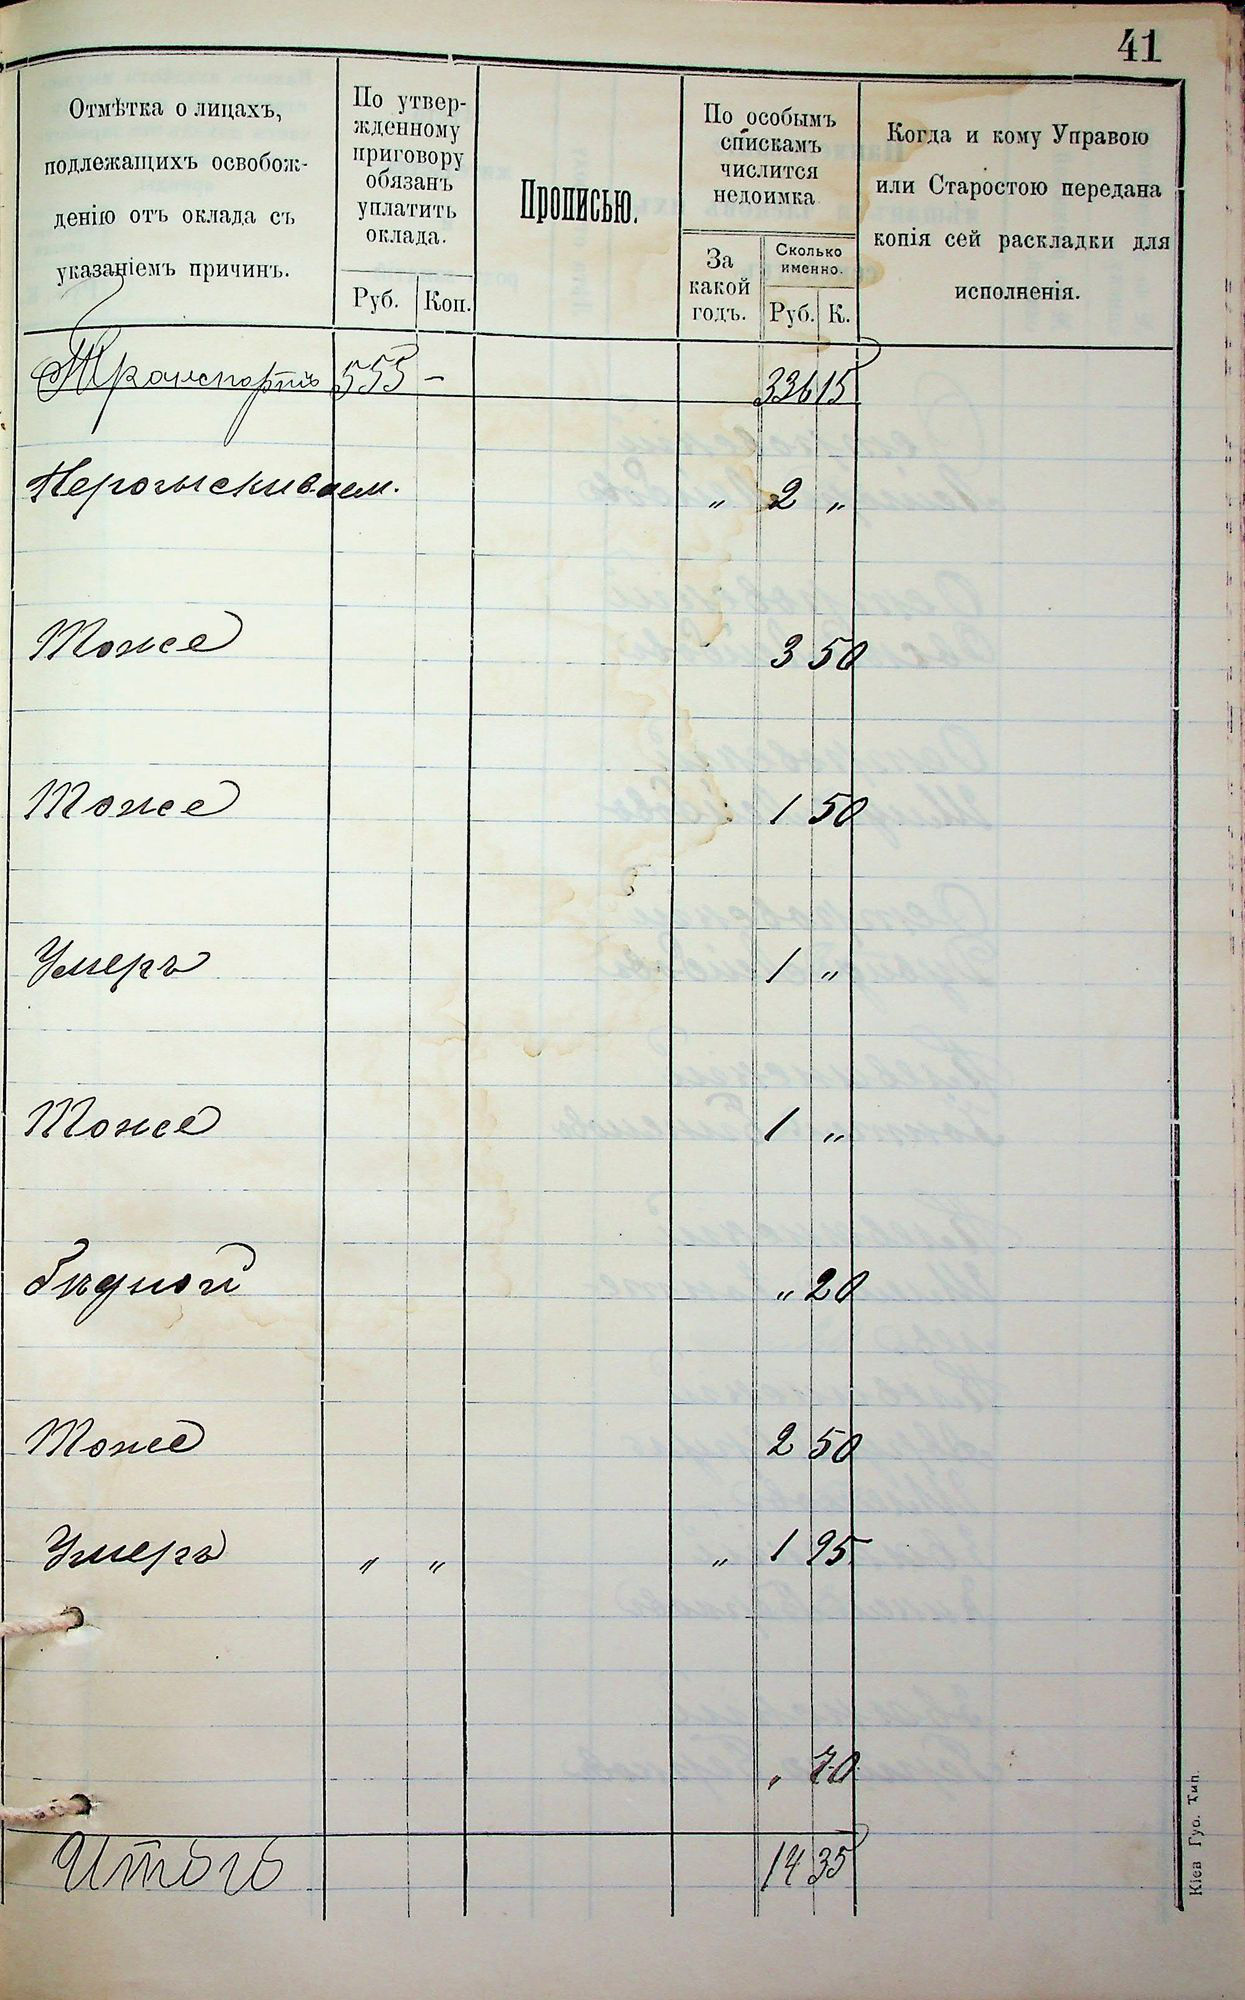 41
Отмѣтка о лицахъ,
подлежащихъ освобож-
денію отъ оклада съ
указаніемъ причинъ.
По утвер-
жденному
приговору
обязанъ
уплатить
оклада.
Руб. Коп.
Прописью.
По особымъ
спискамъ
числится
недоимка
За
какой
годъ.
Сколько
именно.
Руб. К.
Когда и кому Управою
или Старостою передана
копія сей раскладки для
исполненія.
Транспортъ 555 – 336 15
Нерозыскиваем. „ 2 „
Тоже 3 50
Тоже 1 50
Умеръ 1 „
Тоже 1 „
Бѣдной „ 20
Тоже 2 50
Умеръ „ „ „ 1 95
„ 70
Итого 14 35
Кіев Губ. Тип.